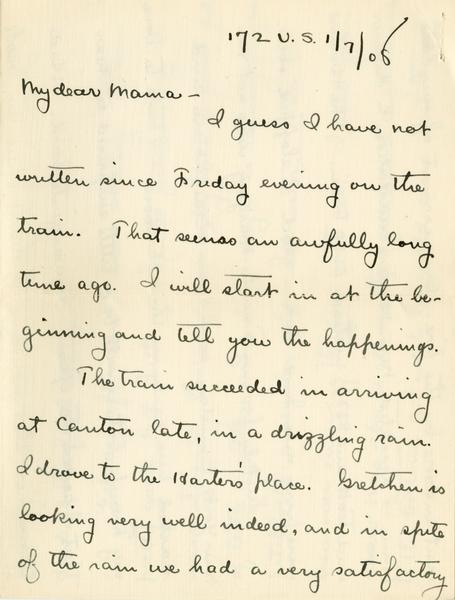 172 U.S. 1/7/06
My dear Mama -
I guess I have not
written since Friday evening on the
train. That seems an awfully long
time ago. I will start in at the be-
ginning and tell you the happenings.
The train succeeded in arriving
at Canton late, in a drizzling rain.
I drove to the Harter's place. Gretchen is
looking very well indeed, and in spite
of the rain we had a very satisfactory